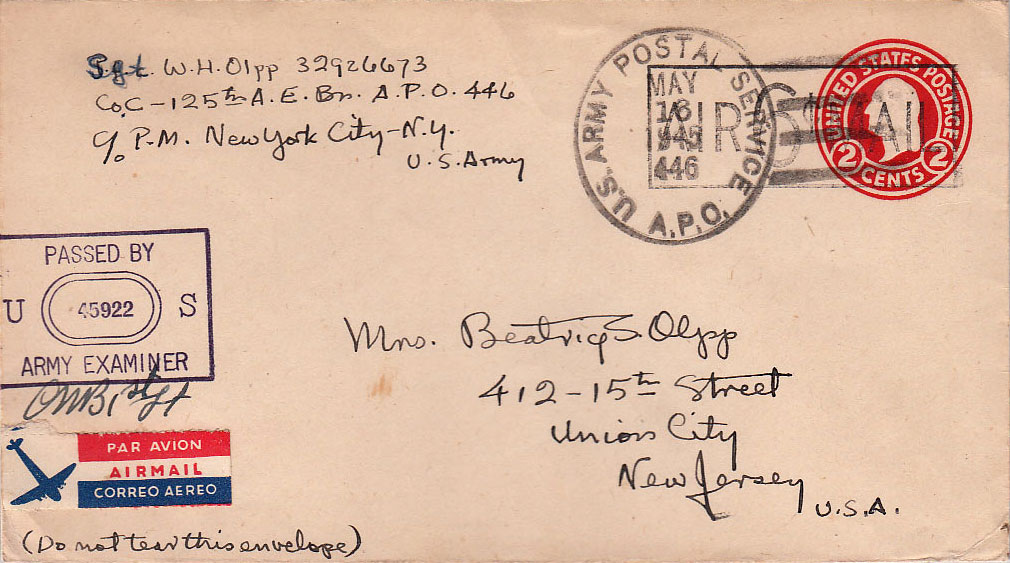 Sgt. W.H. Olpp 32926673
Co. C - 125th A.E. Bn. A.P.O. 446
c/o P.M. New York City - N.Y.
U.S. Army
U.S. ARMY POSTAL SERVICE
A.P.O.
MAY
18
1945
446
AIR 6¢ MAIL
UNITED STATES POSTAGE
2 CENTS 2
PASSED BY
U 45922 S
ARMY EXAMINER
Mrs. Beatrice S. Olpp
412 - 15th Street
Union City
New Jersey
U.S.A.
PAR AVION
AIRMAIL
CORREO AEREO
(Do not tear this envelope)